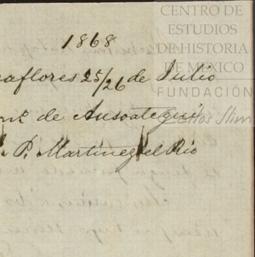 1868
aflores 25/26 de Julio
de Ansoategui
P. Martinez del Rio
CENTRO DE
ESTUDIOS
DE HISTORIA
DE MÉXICO
FUNDACIÓN
Carlos Slim